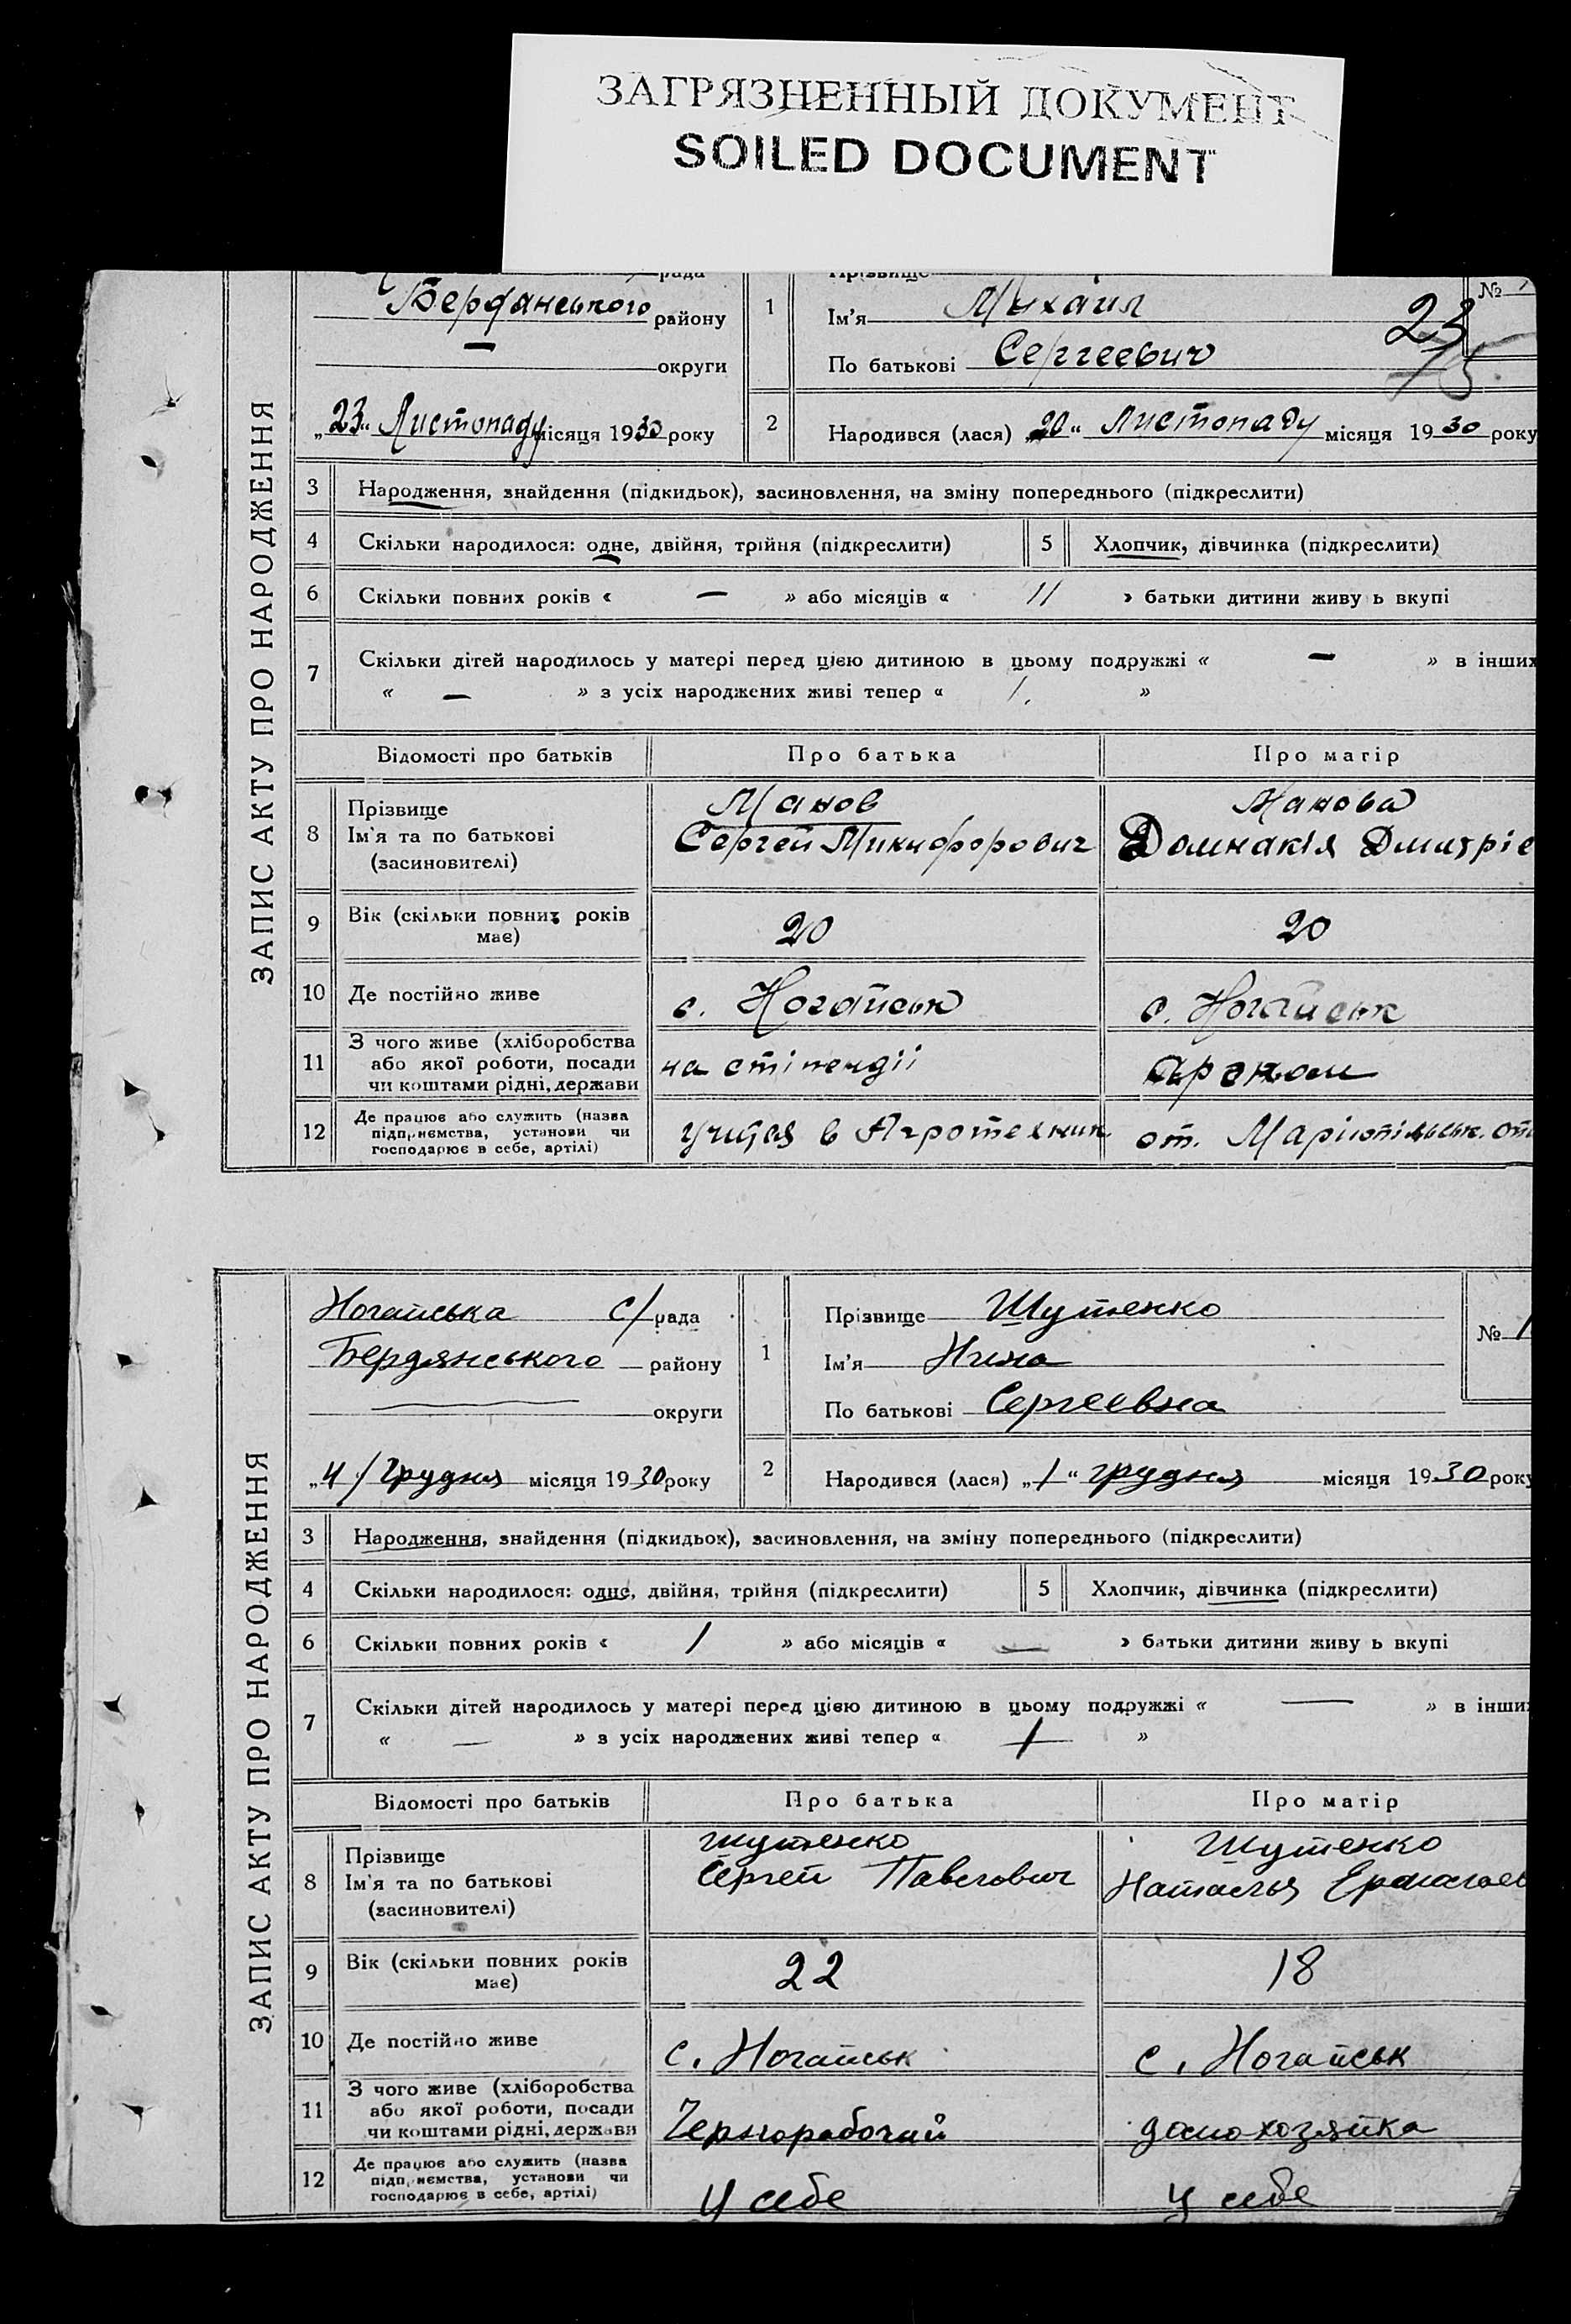 ЗАГРЯЗНЕННЫЙ ДОКУМЕНТ
SOILED DOCUMENT
ЗАПИС АКТУ ПРО НАРОДЖЕННЯ
рада
Прізвище
№
Бердянського району
1
Ім'я Михаил
23
15
— округи
По батькові Сергеевич
„23“ Листопаду місяця 1930 року
2
Народився (лася) „20“ Листопаду місяця 1930 року
3 Народження, знайдення (підкидьок), засиновлення, на зміну попереднього (підкреслити)
4 Скільки народилося: одне, двійня, трійня (підкреслити) 5 Хлопчик, дівчинка (підкреслити)
6 Скільки повних років « — » або місяців « 11 » батьки дитини живу ь вкупі
7 Скільки дітей народилось у матері перед цією дитиною в цьому подружжі « — » в інших
« — » з усіх народжених живі тепер « 1. »
Відомості про батьків Про батька Про матір
8 Прізвище
Ім'я та по батькові
(засиновителі)
Манов
Сергей Микифорович
Манова
Домнакія Дмитріе
9 Вік (скільки повних років
має)
20 20
10 Де постійно живе с. Ногайськ с. Ногайськ
11 З чого живе (хліборобства
або якої роботи, посади
чи коштами рідні, держави
на стіпендіі
12 Де працює або служить (назва
підприємства, установи чи
господарює в себе, артілі)
учитя в Агротехник
от. Маріюпільськ. от
ЗАПИС АКТУ ПРО НАРОДЖЕННЯ
Ногайська с/рада
1
Прізвище Шутенко
№ 1
Бердянського району
Ім'я Нина
— округи
По батькові Сергеевна
„4/ грудня місяця 1930 року
2
Народився (лася) „1“ грудня місяця 1930 року
3 Народження, знайдення (підкидьок), засиновлення, на зміну попереднього (підкреслити)
4 Скільки народилося: одне, двійня, трійня (підкреслити) 5 Хлопчик, дівчинка (підкреслити)
6 Скільки повних років « 1 » або місяців « — » батьки дитини живу ь вкупі
7 Скільки дітей народилось у матері перед цією дитиною в цьому подружжі « — » в інших
« — » з усіх народжених живі тепер « 1 »
Відомості про батьків Про батька Про матір
8 Прізвище
Ім'я та по батькові
(засиновителі)
Шутенко
Сергей Павлович
Шутенко
Наталья
9 Вік (скільки повних років
має)
22 18
10 Де постійно живе с. Ногайськ с. Ногайськ
11 З чого живе (хліборобства
або якої роботи, посади
чи коштами рідні, держави
Чернорабочий домохозяйка
12 Де працює або служить (назва
підприємства, установи чи
господарює в себе, артілі)
У себе У себе